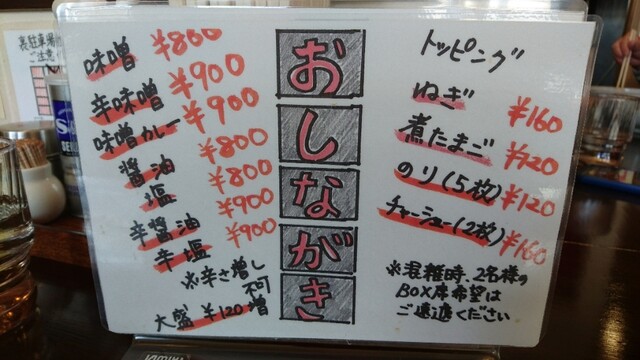 おしながき
味噌 ¥800
辛味噌 ¥900
味噌カレー ¥900
醤油 ¥800
塩 ¥800
辛醤油 ¥900
辛塩 ¥900
※辛さ増し
不可
大盛 ¥120増
トッピング
ねぎ ¥160
煮たまご ¥120
のり(5枚) ¥120
チャーシュー(2枚) ¥160
※混雑時、2名様の
BOX席希望は
ご遠慮ください
裏駐車場
ご注意